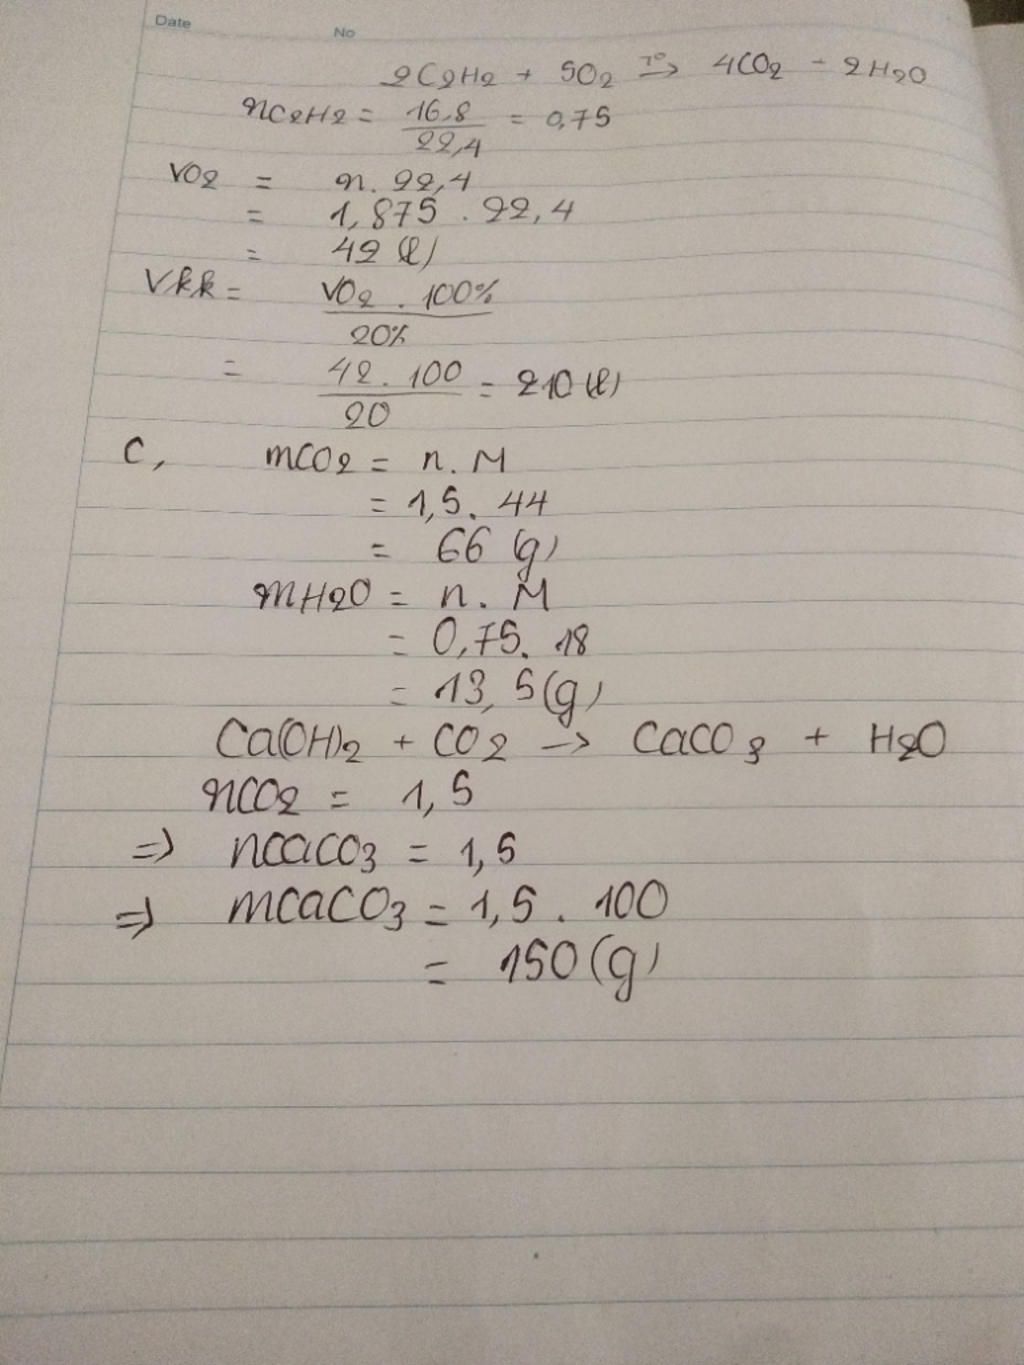 Date
No
2C2H2 + 5O2 →T° 4CO2 - 2H2O
nC2H2 = 16,8 / 22,4 = 0,75
VO2 = n. 22,4
= 1,875 . 22,4
= 42 (l)
Vkk = VO2 . 100% / 20%
= 42 . 100 / 20 = 210 (l)
C, mCO2 = n. M
= 1,5. 44
= 66 (g)
mH2O = n. M
= 0,75. 18
= 13,5(g)
Ca(OH)2 + CO2 -> CaCO3 + H2O
nCO2 = 1,5
=> nCaCO3 = 1,5
=> mCaCO3 = 1,5 . 100
= 150(g)